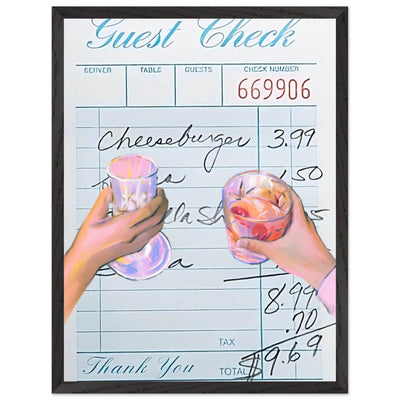 Guest Check
SERVER TABLE GUESTS CHECK NUMBER
669906
Cheeseburger 3.99
.50
8.99
.70
TAX
Thank You TOTAL $9.69